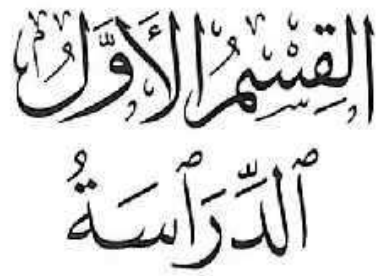 القِسْمُ الأَوَّل
ٱلدِّرَٱسَةُ